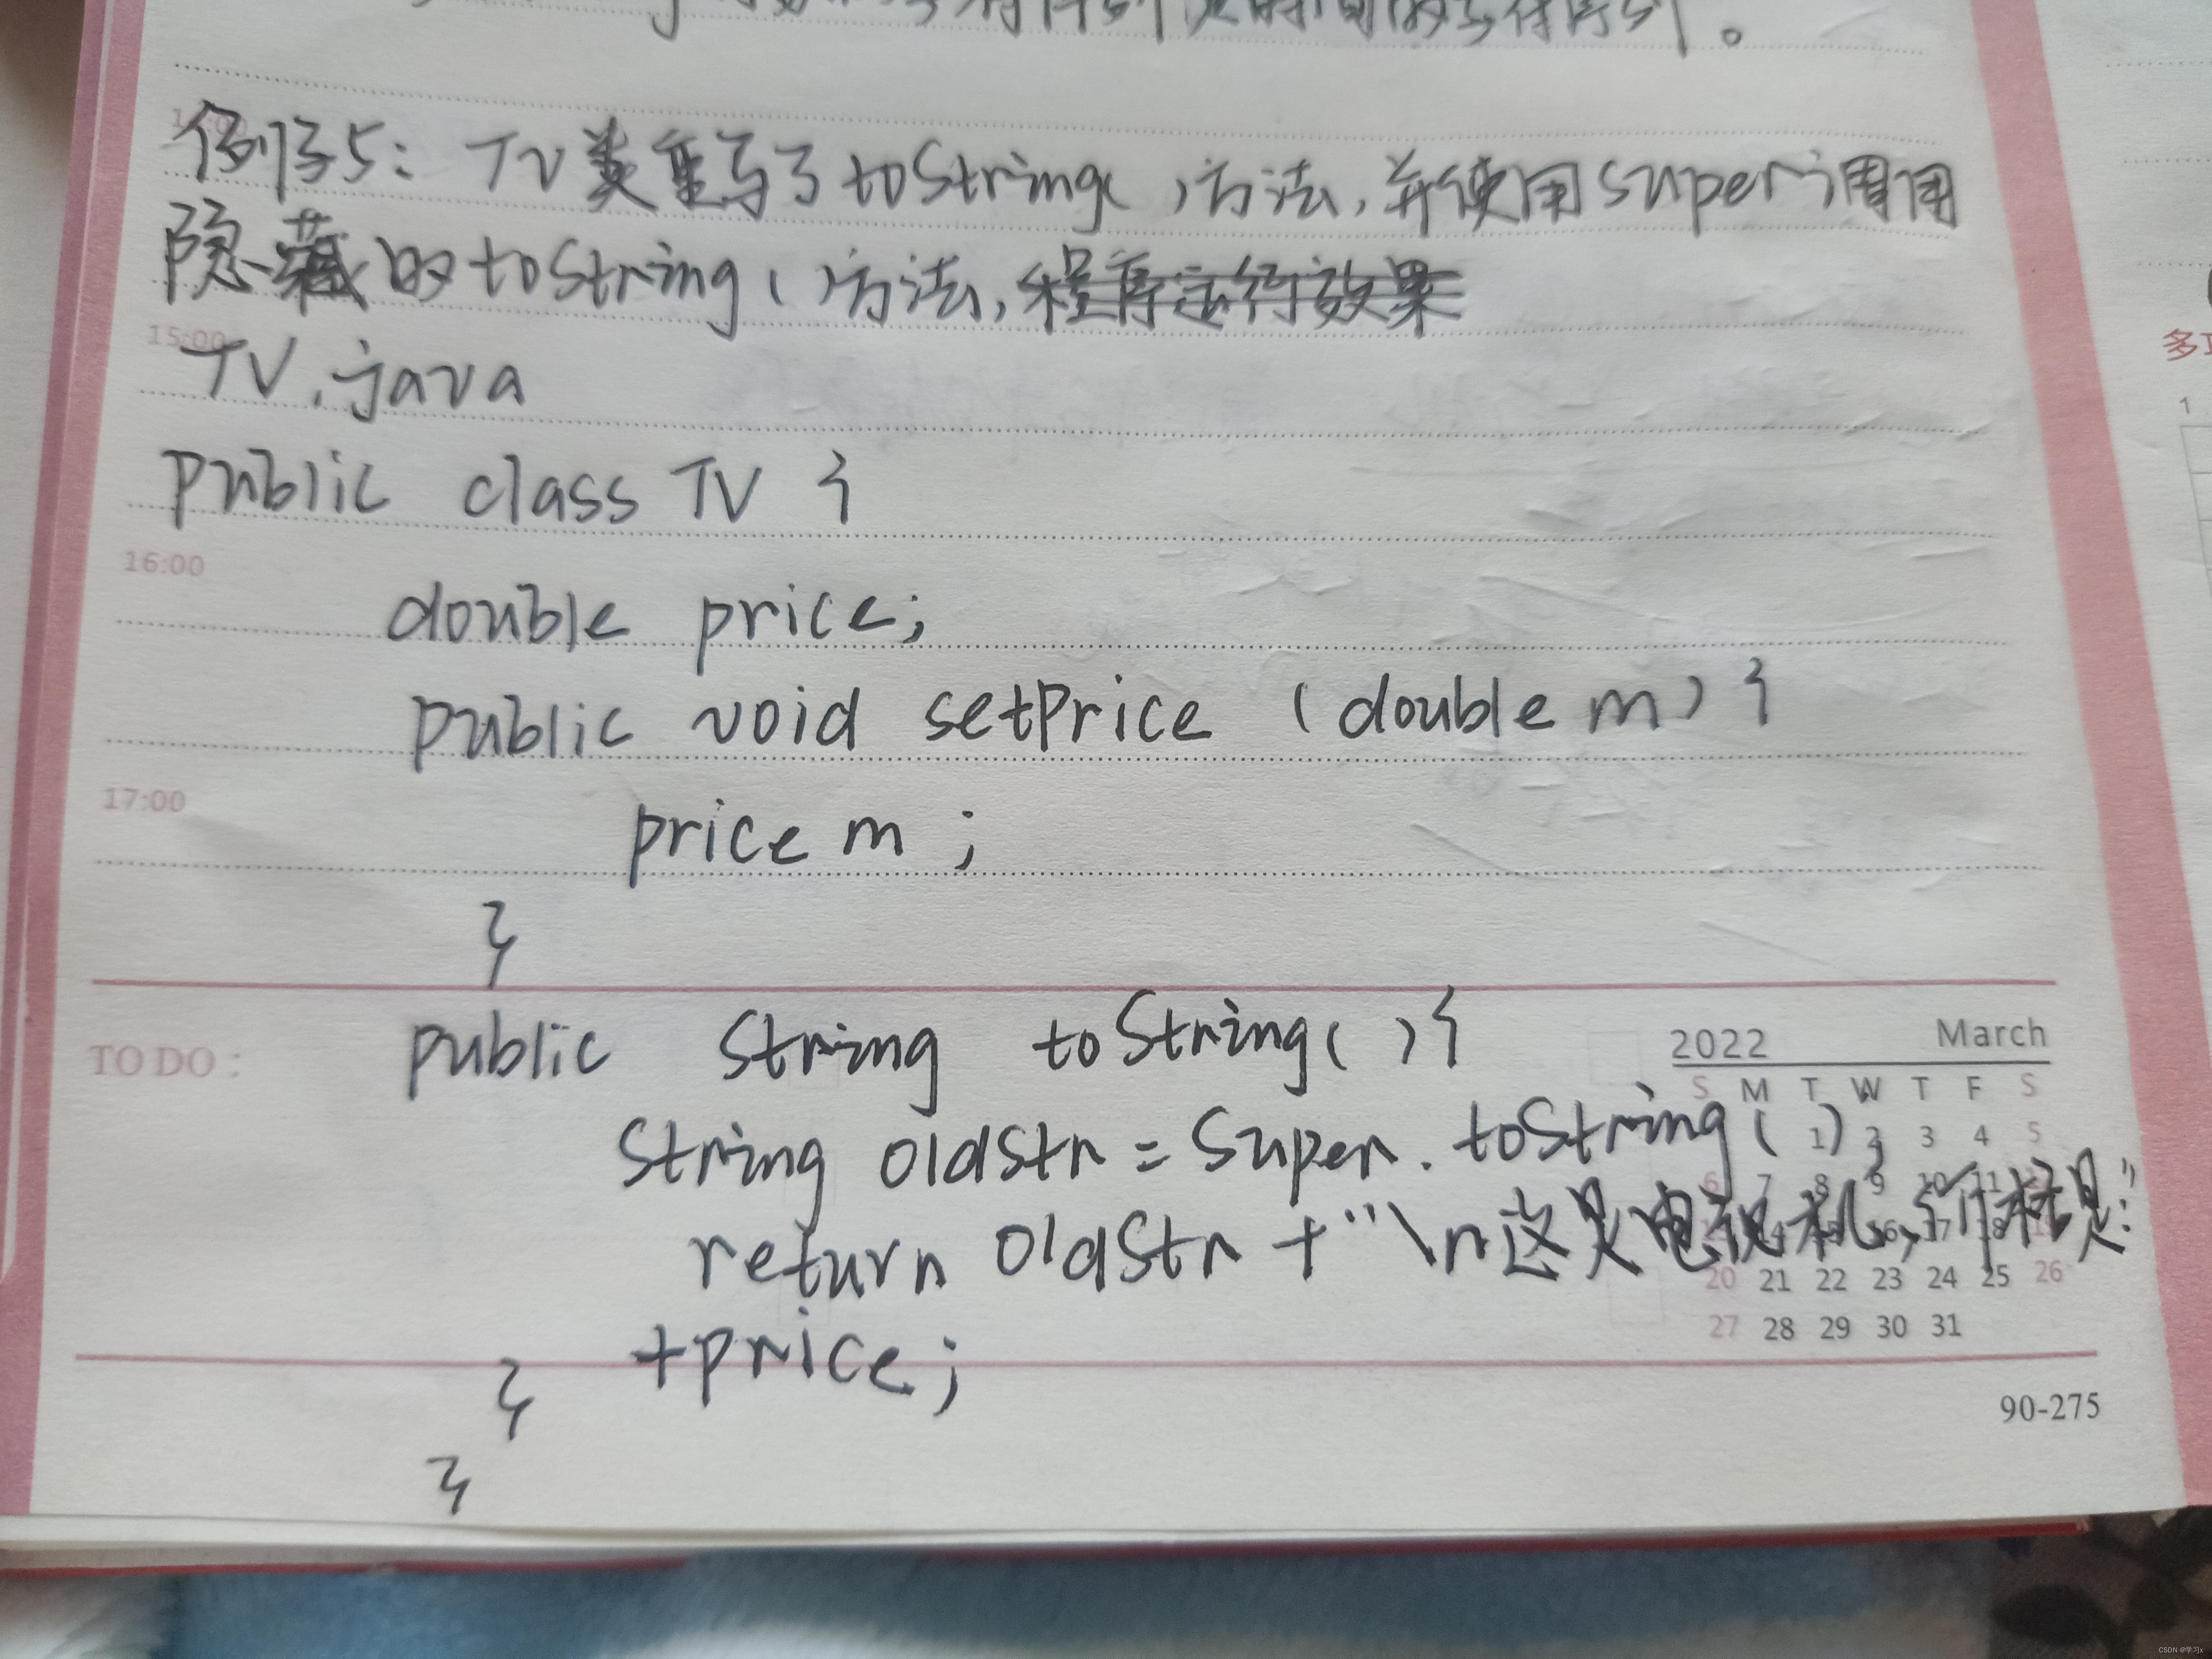 例子5：TV类重写了toString( )方法，并使用super调用
隐藏的toString( )方法，程序运行效果
15:00
TV.java
public class TV {
16:00
double price;
public void setPrice (double m) {
17:00
price m ;
}
2022 March
public String toString( ) {
TO DO :
S M T W T F S
String oldStr = super.toString( );
1 2 3 4 5
6 7 8 9 10 11
return oldStr + "\n这是电视机，价格是:"
16 17 18
20 21 22 23 24 25 26
+price;
27 28 29 30 31
}
90-275
}
多
1
CSDN @学习x